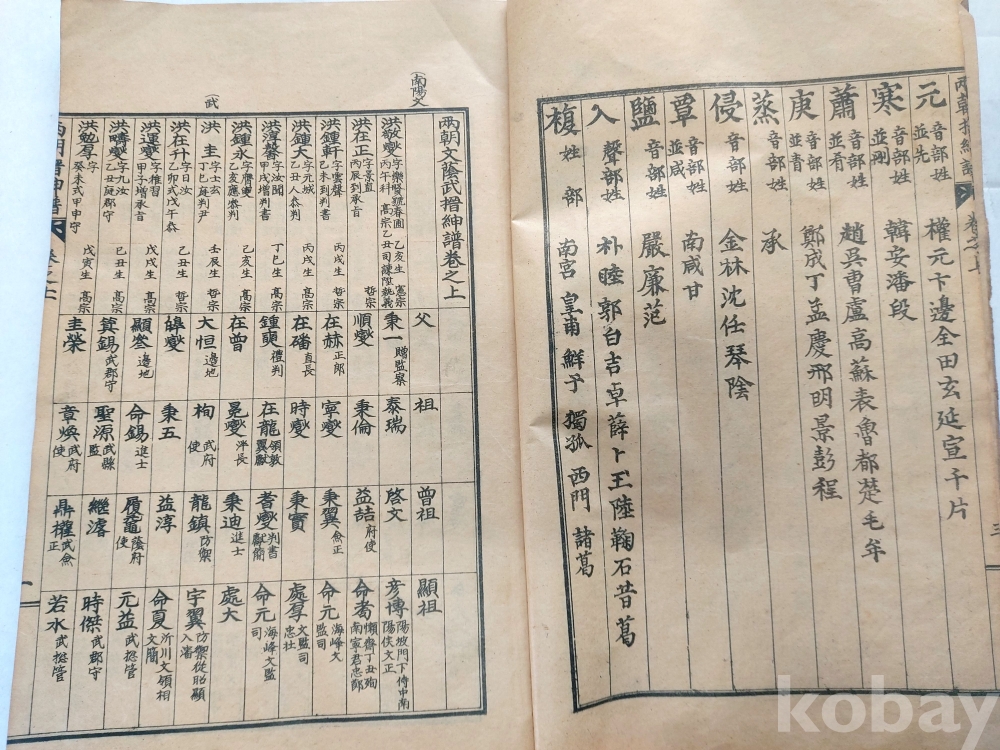 元 音部姓 並先 權元卞邊全田玄延宣千片
寒 音部姓 並刪 韓安潘段
蕭 音部姓 並肴 趙吳曹盧高蘇表魯都楚毛牟
庚 音部姓 並青 鄭成丁孟慶邢明景彭程
蒸 音部姓 承
侵 音部姓 金林沈任琴陰
覃 音部姓 並咸 南咸甘
鹽 音部姓 嚴廉范
入 聲部姓 朴睦郭白吉卓薛卜玉陸鞠石昔葛
複姓部 南宮 皇甫 鮮于 獨孤 西門 諸葛
三
(南陽文)
(武)
兩朝文蔭武搢紳譜卷之上 父 祖 曾祖 顯祖
洪敬燮 字樂賢號春圃 乙亥生 憲宗丙午科 高宗乙丑司諫陞執義 秉一 贈監察 泰瑞 啓文 彦博 陽坡門下侍中南陽侯文正
洪在正 字景直 哲宗丙辰到承旨 順燮 秉倫 益喆 府使 命耇 懶齋丁丑殉南寧君忠
洪鍾軒 字雲聲 丙戌生 哲宗己未到判書 在赫 正郎 寧燮 秉翼 僉正 命元 海峰文監司
洪鍾大 字元城 丙戌生 高宗乙丑人恭判 在磻 直長 時燮 秉實 處厚 文監司忠壯
洪淳馨 字汝聞 丁巳生 高宗甲戌增判書 鍾奭 禮判 在龍 領敦翼獻 耆燮 判書獻簡 命元 海峰文監司
洪鍾永 己亥生 高宗乙亥應恭判 在曾 冕燮 秉迪 進士 處大
洪圭 字士玄 壬辰生 哲宗丁巳庭判尹 大恒 邊地 枸 武府使 龍鎮 防禦 宇翼 防禦從昭顯入瀋
洪在升 字日汝 乙丑生 哲宗丁卯式戊午恭 皡燮 秉五 益淳 命夏 沂川文領相文簡
洪運燮 字稚習 戊戌生 高宗甲子增承旨 顯 邊地 命錫 進士 履 蔭府使 元益 武摠管
洪疇燮 字九汝 己丑生 高宗乙丑庭郡守 箕錫 武郡守 聖源 武縣監 繼濬 時傑 武郡守
洪勉厚 字 戊寅生 高宗癸未式甲申守 圭榮 章煥 武府使 鼎權 武僉正 若水 武摠管
一
kobay